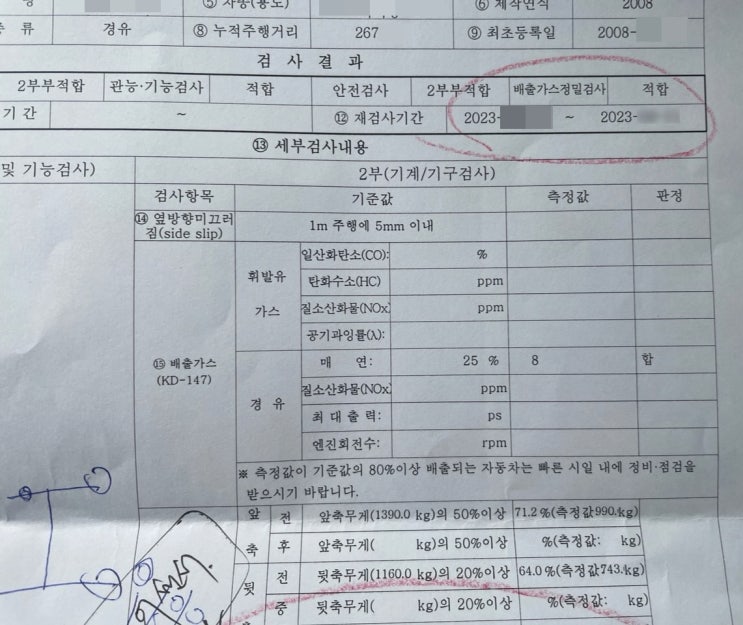 ⑤ 차종(용도) ⑥ 제작연식 2008
종 류 경유 ⑧ 누적주행거리 267 ⑨ 최초등록일 2008-
검 사 결 과
2부부적합 관능·기능검사 적합 안전검사 2부부적합 배출가스정밀검사 적합
기 간 ~ ⑫ 재검사기간 2023- ~ 2023-
⑬ 세부검사내용
및 기능검사) 2부(기계/기구검사)
검사항목 기준값 측정값 판정
⑭ 옆방향미끄러
짐(side slip) 1m 주행에 5mm 이내
휘발유
가스
일산화탄소(CO): %
탄화수소(HC) ppm
질소산화물(NOx) ppm
공기과잉률(λ):
⑮ 배출가스
(KD-147)
경 유
매 연: 25 % 8 합
질소산화물(NOx) ppm
최 대 출 력: ps
엔진회전수: rpm
※ 측정값이 기준값의 80%이상 배출되는 자동차는 빠른 시일 내에 정비·점검을
받으시기 바랍니다.
앞 전 앞축무게(1390.0 kg)의 50%이상 71.2 %(측정값990.kg)
축 후 앞축무게( kg)의 50%이상 %(측정값: kg)
뒷 전 뒷축무게(1160.0 kg)의 20%이상 64.0 %(측정값743.kg)
중 뒷축무게( kg)의 20%이상 %(측정값: kg)